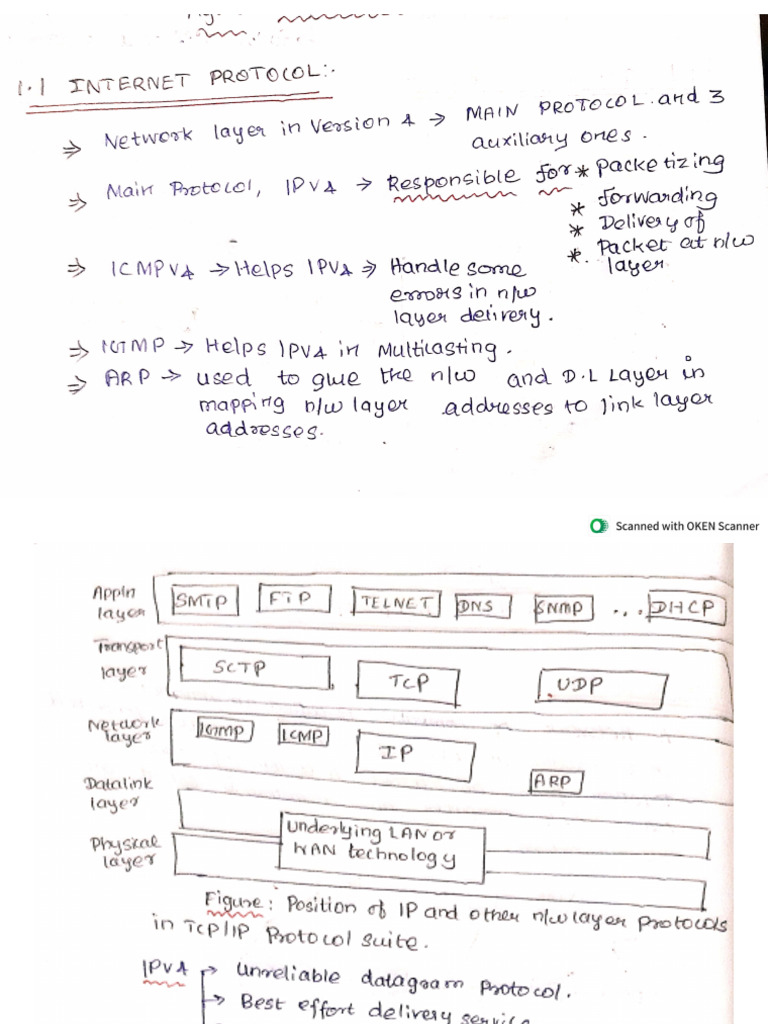 1.1 INTERNET PROTOCOL:-
⇒ Network layer in Version 4 → MAIN PROTOCOL and 3
auxiliary ones.
⇒ Main Protocol, IPV4 → Responsible for * Packetizing
* forwarding
* Delivery of
Packet at n/w
layer
⇒ ICMPV4 → Helps IPV4 ⇒ Handle some
errors in n/w
layer delivery.
⇒ IGMP → Helps IPV4 in Multicasting.
⇒ ARP → used to glue the n/w and D.L Layer in
mapping n/w layer addresses to link layer
addresses.
Scanned with OKEN Scanner
Appln
layer
SMTP FTP TELNET DNS SNMP ... DHCP
Transport
layer
SCTP TCP UDP
Network
layer
IGMP ICMP IP ARP
Datalink
layer
Physical
layer
Underlying LAN or
WAN technology
Figure: Position of IP and other n/w layer Protocols
in TCP/IP Protocol suite.
IPV4 → Unreliable datagram Protocol.
→ Best effort delivery service